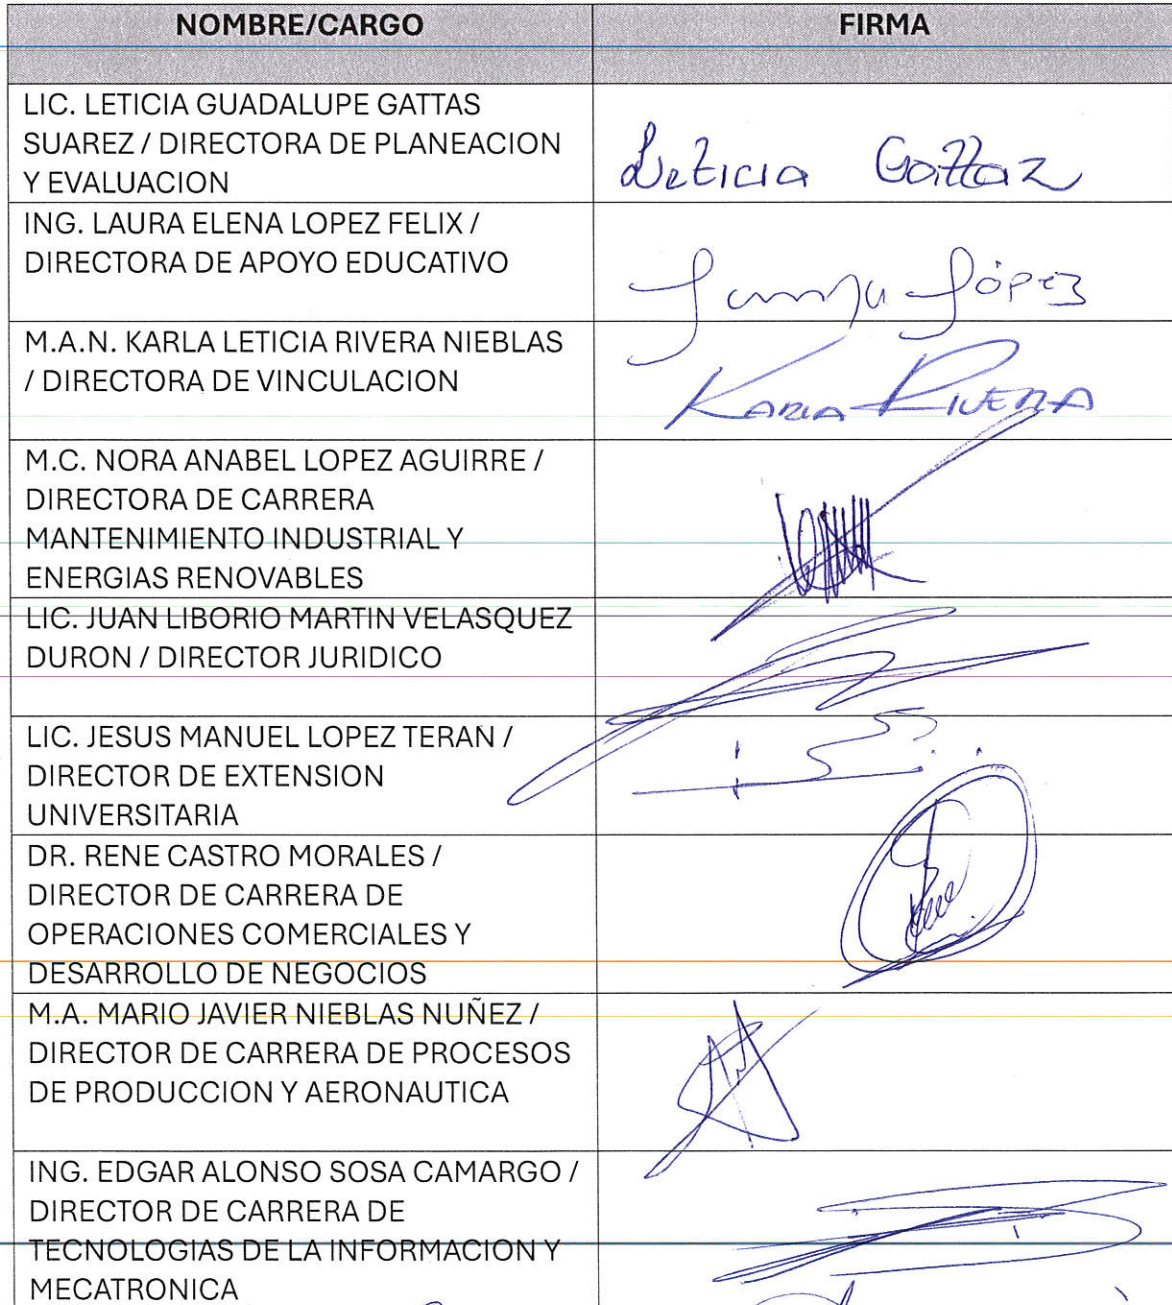 NOMBRE/CARGO FIRMA
LIC. LETICIA GUADALUPE GATTAS
SUAREZ / DIRECTORA DE PLANEACION
Y EVALUACION
Leticia Gattaz
ING. LAURA ELENA LOPEZ FELIX /
DIRECTORA DE APOYO EDUCATIVO
López
M.A.N. KARLA LETICIA RIVERA NIEBLAS
/ DIRECTORA DE VINCULACION
KARLA RIVERA
M.C. NORA ANABEL LOPEZ AGUIRRE /
DIRECTORA DE CARRERA
MANTENIMIENTO INDUSTRIAL Y
ENERGIAS RENOVABLES
LIC. JUAN LIBORIO MARTIN VELASQUEZ
DURON / DIRECTOR JURIDICO
LIC. JESUS MANUEL LOPEZ TERAN /
DIRECTOR DE EXTENSION
UNIVERSITARIA
DR. RENE CASTRO MORALES /
DIRECTOR DE CARRERA DE
OPERACIONES COMERCIALES Y
DESARROLLO DE NEGOCIOS
M.A. MARIO JAVIER NIEBLAS NUÑEZ /
DIRECTOR DE CARRERA DE PROCESOS
DE PRODUCCION Y AERONAUTICA
ING. EDGAR ALONSO SOSA CAMARGO /
DIRECTOR DE CARRERA DE
TECNOLOGIAS DE LA INFORMACION Y
MECATRONICA